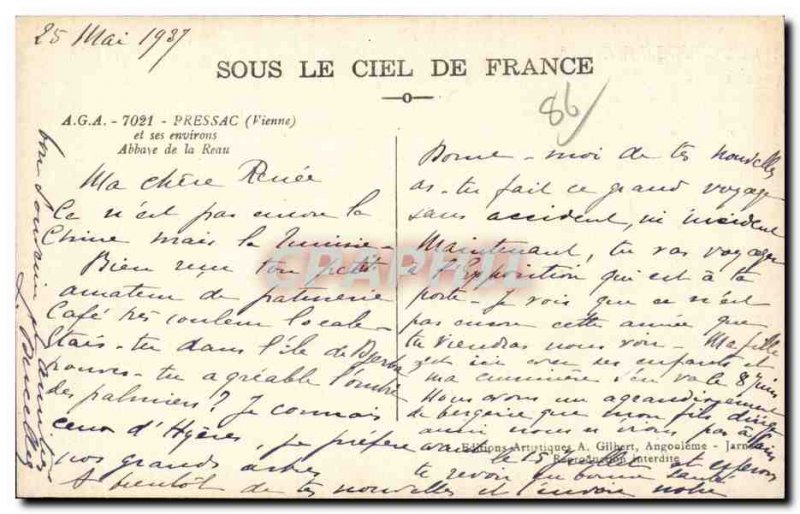 25 Mai 1937
SOUS LE CIEL DE FRANCE
86
A.G.A. - 7021 - PRESSAC (Vienne)
et ses environs
Abbaye de la Reau
Ma chère Renée
Ce n'est pas encore la
Chine mais la Tunisie -
Bien reçu ton petit
amateur de palmeraie
Café très couleur locale -
Etais-tu dans l'île de Djerba
trouves-tu agréable l'ombre
des palmiers? Je connais
ceux d'Hyères, je préfère
nos grands arbres
A bientôt de tes nouvelles et l'envoie notre
bon souvenir
Donne-moi de tes nouvelles
as-tu fait ce grand voyage
sans accident, ni incident
Maintenant, tu vas voyager
à l'Exposition qui est à ta
porte - Je vois que ce n'est
pas encore cette année que
tu viendras nous voir - Ma fille
est ici avec ses enfants et
ma cuisinière s'en va le 8 juin
Nous avons un agrandissement
de bergerie que mon fils dirige
aussi nous n'irons pas à
avant le 15 Juillet et espérons
te revoir en bonne santé
Editions Artistiques A. Gilbert, Angoulême - Jarnac
Reproduction interdite
CPAPHIL